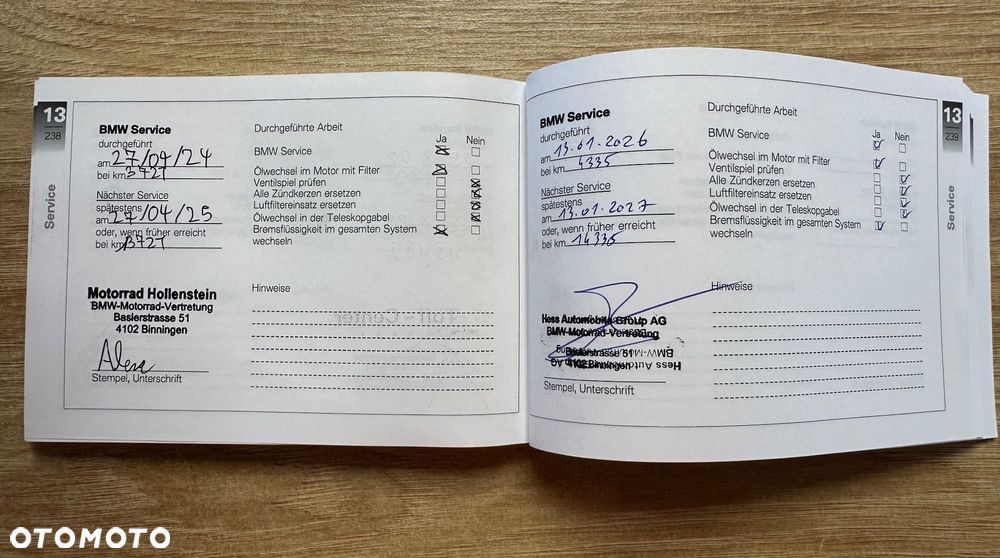 13
238
Service
BMW Service
durchgeführt
am 27/04/24
bei km 3721
Nächster Service
spätestens
am 27/04/25
oder, wenn früher erreicht
bei km 13721
Motorrad Hollenstein
BMW-Motorrad-Vertretung
Baslerstrasse 51
4102 Binningen
Stempel, Unterschrift
Durchgeführte Arbeit
Ja Nein
BMW Service
Ölwechsel im Motor mit Filter
Ventilspiel prüfen
Alle Zündkerzen ersetzen
Luftfiltereinsatz ersetzen
Ölwechsel in der Teleskopgabel
Bremsflüssigkeit im gesamten System
wechseln
Hinweise
BMW Service
durchgeführt
am 13.01.2026
bei km 4335
Nächster Service
spätestens
am 13.01.2027
oder, wenn früher erreicht
bei km 14335
Hess Automobile Group AG
BMW-Motorrad-Vertretung
Baslerstrasse
4102 Binningen
Stempel, Unterschrift
Durchgeführte Arbeit
Ja Nein
BMW Service
Ölwechsel im Motor mit Filter
Ventilspiel prüfen
Alle Zündkerzen ersetzen
Luftfiltereinsatz ersetzen
Ölwechsel in der Teleskopgabel
Bremsflüssigkeit im gesamten System
wechseln
Hinweise
13
239
Service
OTOMOTO